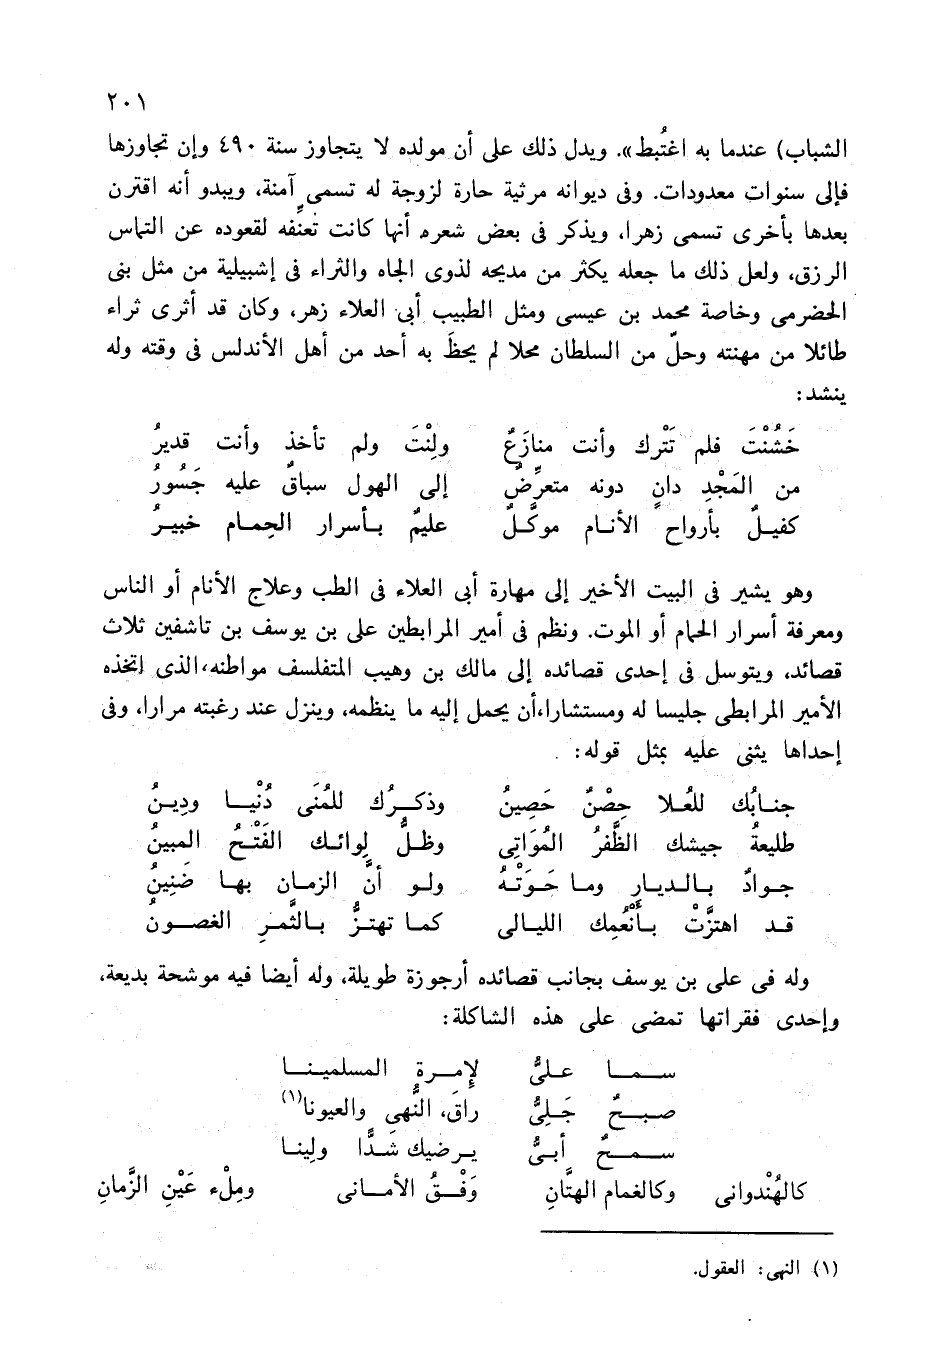 ٢٠١
الشباب) عندما به اغتُبط». ويدل ذلك على أن مولده لا يتجاوز سنة ٤٩٠ وإن تجاوزها
فإلى سنوات معدودات. وفى ديوانه مرثية حارة لزوجة له تسمى آمنة، ويبدو أنه اقترن
بعدها بأخرى تسمى زهرا، ويذكر فى بعض شعره أنها كانت تعنِّفه لقعوده عن التماس
الرزق، ولعل ذلك ما جعله يكثر من مديحه لذوى الجاه والثراء فى إشبيلية من مثل بنى
الحضرمى وخاصة محمد بن عيسى ومثل الطبيب أبى العلاء زهر، وكان قد أثرى ثراء
طائلا من مهنته وحلّ من السلطان محلا لم يحظَ به أحد من أهل الأندلس فى وقته وله
ينشد:
خَشُنْتَ فلم تَتْرك وأنت منازَعٌ ولِنْتَ ولم تأخذ وأنت قديرُ
من المَجْدِ دانٍ دونه متعرِّضٌ إلى الهول سباقٌ عليه جَسُورُ
كفيلٌ بأرواح الأنام موكَّلٌ عليمٌ بأسرار الحِمام خبيرُ
وهو يشير فى البيت الأخير إلى مهارة أبى العلاء فى الطب وعلاج الأنام أو الناس
ومعرفة أسرار الحمام أو الموت. ونظم فى أمير المرابطين على بن يوسف بن تاشفين ثلاث
قصائد، ويتوسل فى إحدى قصائده إلى مالك بن وهيب المتفلسف مواطنه، الذى اتخذه
الأمير المرابطى جليسا له ومستشارا، أن يحمل إليه ما ينظمه، وينزل عند رغبته مرارا، وفى
إحداها يثنى عليه بمثل قوله:
جنابُك للعُلا حِصْنٌ حَصِينُ وذكرُك للمُنَى دُنْيا ودِينُ
طليعةُ جيشك الظَّفرُ المُوَاتِى وظلُّ لِوائك الفَتْحُ المبينُ
جوادٌ بالديار وما حَوَتْهُ ولو أنَّ الزمان بها ضَنِينُ
قد اهتزَّتْ بأَنْعُمِك الليالى كما تهتزُّ بالثَّمرِ الغصونُ
وله فى على بن يوسف بجانب قصائده أرجوزة طويلة، وله أيضا فيه موشحة بديعة،
وإحدى فقراتها تمضى على هذه الشاكلة:
سما علىُّ لإمرة المسلمينا
صبحٌ جَلِىُّ راقَ، النُّهى والعيونا(١)
سمحٌ أبىُّ يرضيك شَدًّا ولِينا
كالهُنْدوانى وكالغمام الهتَّانِ وَفْقُ الأمانى ومِلْء عَيْنِ الزَّمانِ
(١) النهى: العقول.